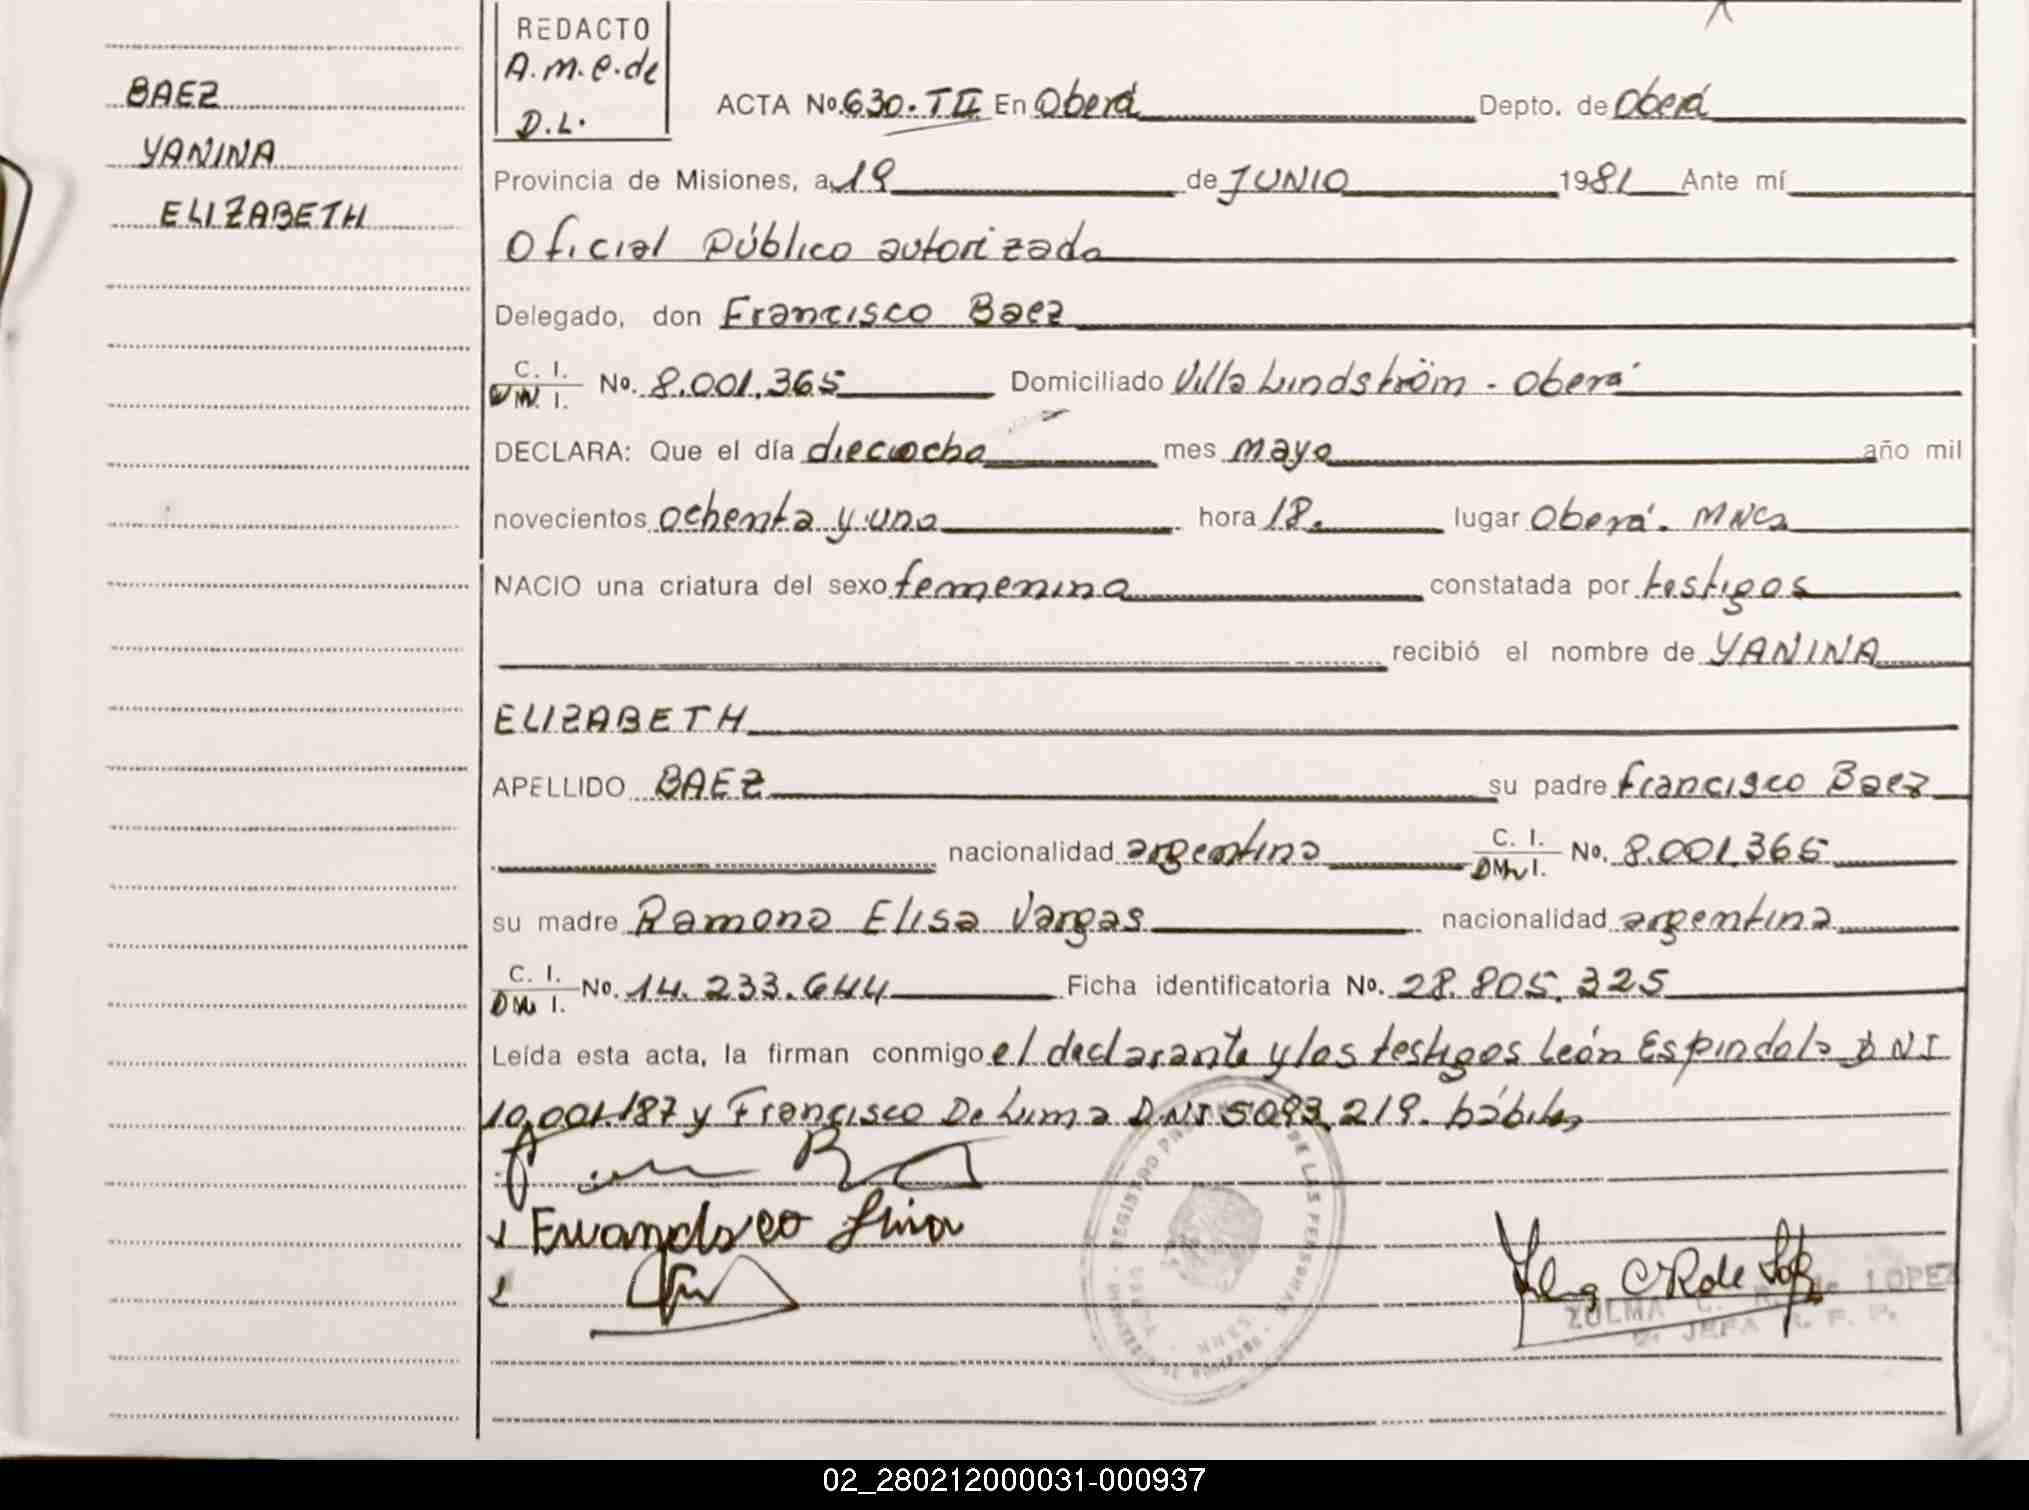 BAEZ
YANINA
ELIZABETH
REDACTO
A.m.e.de
D.L.
ACTA No. 630. T II En Oberá Depto. de Oberá
Provincia de Misiones, a 19 de JUNIO 1981 Ante mí
Oficial Público autorizado
Delegado, don Francisco Baez
C. I. No. 8.001.365 Domiciliado Villa Lundström - Oberá
DECLARA: Que el día dieciocho mes mayo año mil
novecientos ochenta y uno hora 18. lugar Oberá. Mnes
NACIO una criatura del sexo femenino constatada por testigos
recibió el nombre de YANINA
ELIZABETH
APELLIDO BAEZ su padre Francisco Baez
nacionalidad argentino C. I. No. 8.001.365
su madre Ramona Elisa Vargas nacionalidad argentina
C. I. No. 14.233.644 Ficha identificatoria No. 28.805.325
Leída esta acta, la firman conmigo el declarante y los testigos León Espíndola DNI
10.001.187 y Francisco De Lima DNI 5093.219. hábiles
REGISTRO DE LAS PERSONAS
MNES
ZULMA C. R. de LOPEZ
JEFA R. P. P.
02_280212000031-000937